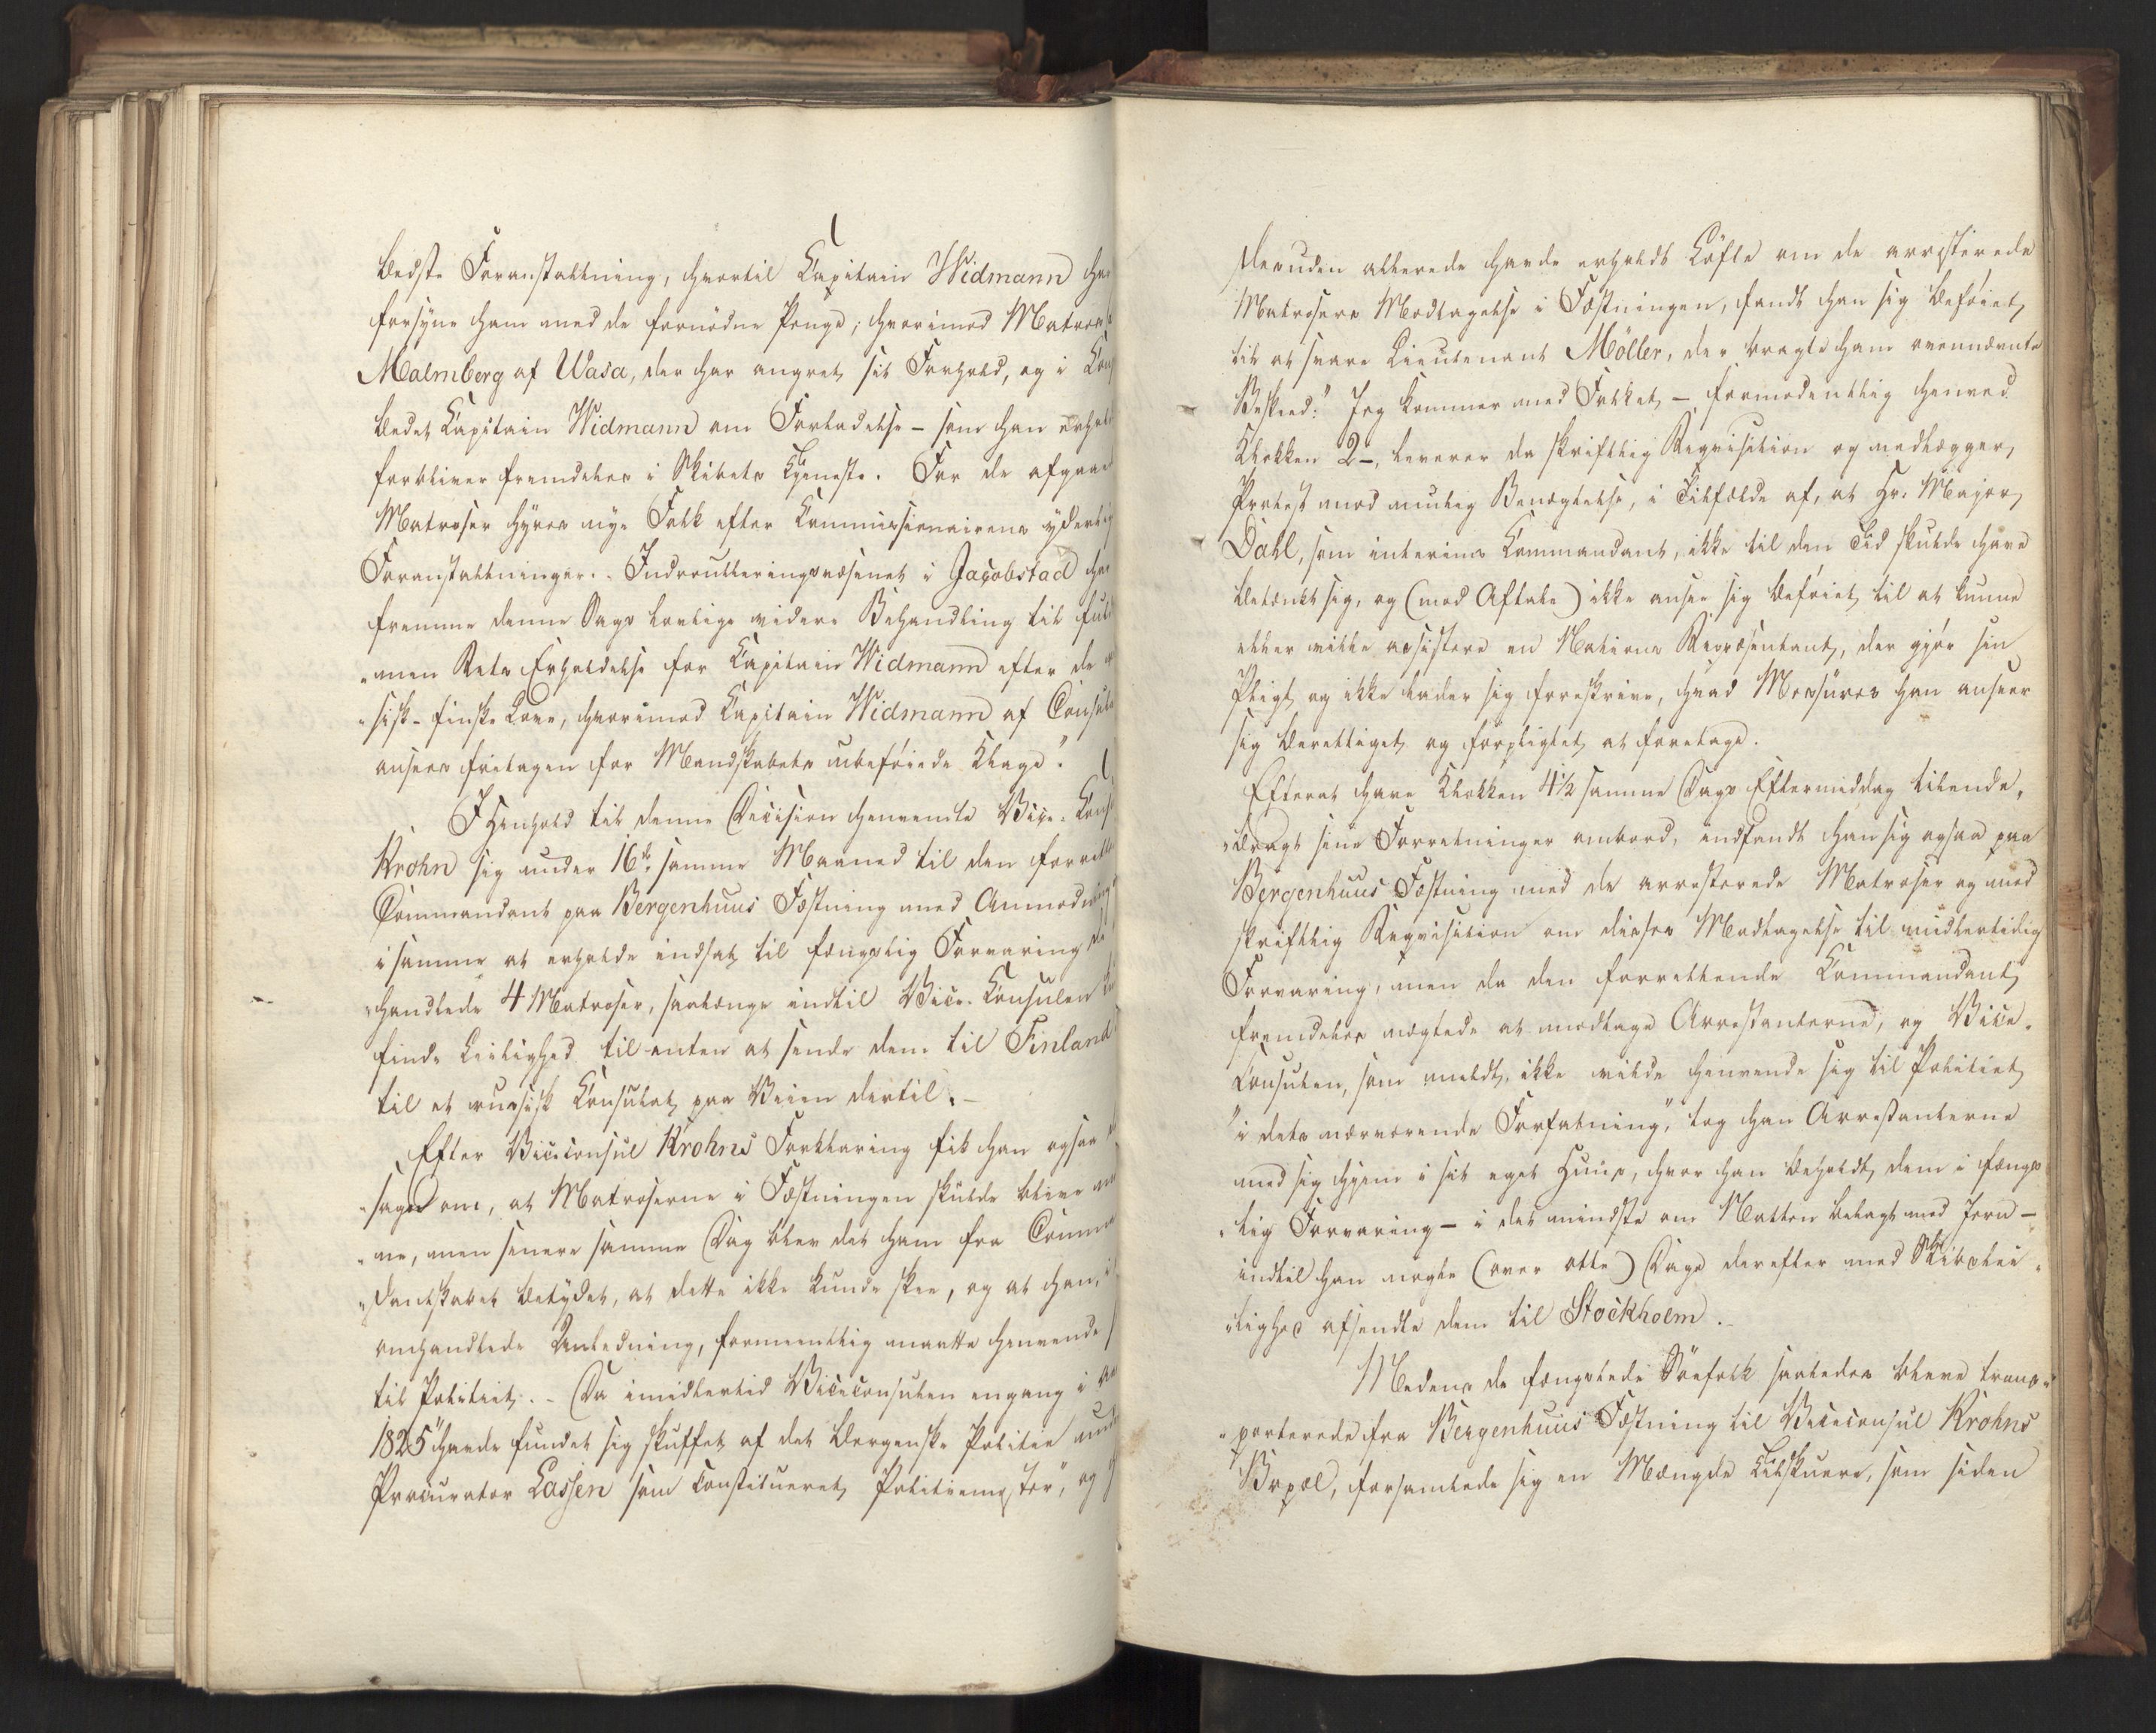 bedste Foranstaltning, hvortil Capitain Widmann har
forsyne ham med de fornödne Penge; hvorimod Matros
Malmberg af Wasa, der har angret sit Forhold, og i
bedet Capitain Widmann om Forladelse – som han erholdt
forbliver fremdeles i Skibets Tjeneste. For de afgaaede
Matroser hyres nye Folk efter Commissionairens yderlig
Foranstaltninger. – Indroulleringsvæsenet i Jacobstad har
fremme denne Sags lovlige videre Behandling til fuld
„men Rets Erholdelse for Capitain Widmann efter de
„sisk-finske Love, hvorimod Capitain Widmann af Consul
ansees fritagen for Mandskabets ubeföiede Klage."
I Henhold til denne Decision henvendte Vice-Consul
Krohn sig under 16de samme Maaned til den forrettende
Commandant paa Bergenhuus Fæstning med Anmodning
i samme at erholde indsat til fængslig Forvaring de
„handlede 4 Matroser, saalænge indtil Vice-Consulen
finde Leilighed til enten at sende dem til Finland
til et russisk Consulat paa Veien dertil. –
Efter Viceconsul Krohns Forklaring fik han ogsaa
„sagn om, at Matroserne i Fæstningen skulde blive
„ne, men senere samme Dag blev det ham fra Comman
„dantskabet betydet, at dette ikke kunde skee, og at han, i
omhandlede Anledning, formeentlig maatte henvende
til Politiet. – Da imidlertid Viceconsulen engang i
1825 „havde fundet sig skuffet af det bergenske Politie
Procurator Lassen som constitueret Politiemester", og
desuden allerede havde erholdt Löfte om de arresterede
Matrosers Modtagelse i Fæstningen, fandt han sig beföiet
til at svare Lieutenant Möller, der bragte ham ovennævnte
Beskeed: „Jeg kommer med Folket – formodentlig henved
Klokken 2 –, leverer da skriftlig Reqvisition og nedlægger
Protest mod muelig Benægtelse, i Tilfælde af, at Hr. Major
Dahl, som interims Commandant, ikke til den Tid skulde have
betænkt sig, og (mod Aftale) ikke ansee sig beföiet til at kunne
eller ville assistere en Nations Repræsentant, der gjör sin
Pligt og ikke lader sig foreskrive, hvad Mesüres han anseer
sig berettiget og forpligtet at foretage.
Efterat have Klokken 4½ samme Dags Eftermiddag tilende„
„bragt sine Forretninger ombord, indfandt han sig ogsaa paa
Bergenhuus Fæstning med de arresterede Matroser og med
skriftlig Reqvisition om disses Modtagelse til midlertidig
Forvaring, men da den forrettende Commandant
fremdeles nægtede at modtage Arrestanterne, og Vice„
Consulen, som meldt, ikke vilde henvende sig til Politiet
„i dets nærværende Forfatning", tog han Arrestanterne
med sig hjem i sit eget Huus, hvor han beholdt dem i fængs„
„lig Forvaring – i det mindste om Natten belagt med Jern –
indtil han nogle (over otte) Dage derefter med Skibslei„
„lighed afsendte dem til Stockholm. –
Medens de fængslede Söefolk saaledes bleve trans„
„porterede fra Bergenhuus Fæstning til Viceconsul Krohns
Bopæl, forsamlede sig en Mængde Tilskuere, som siden